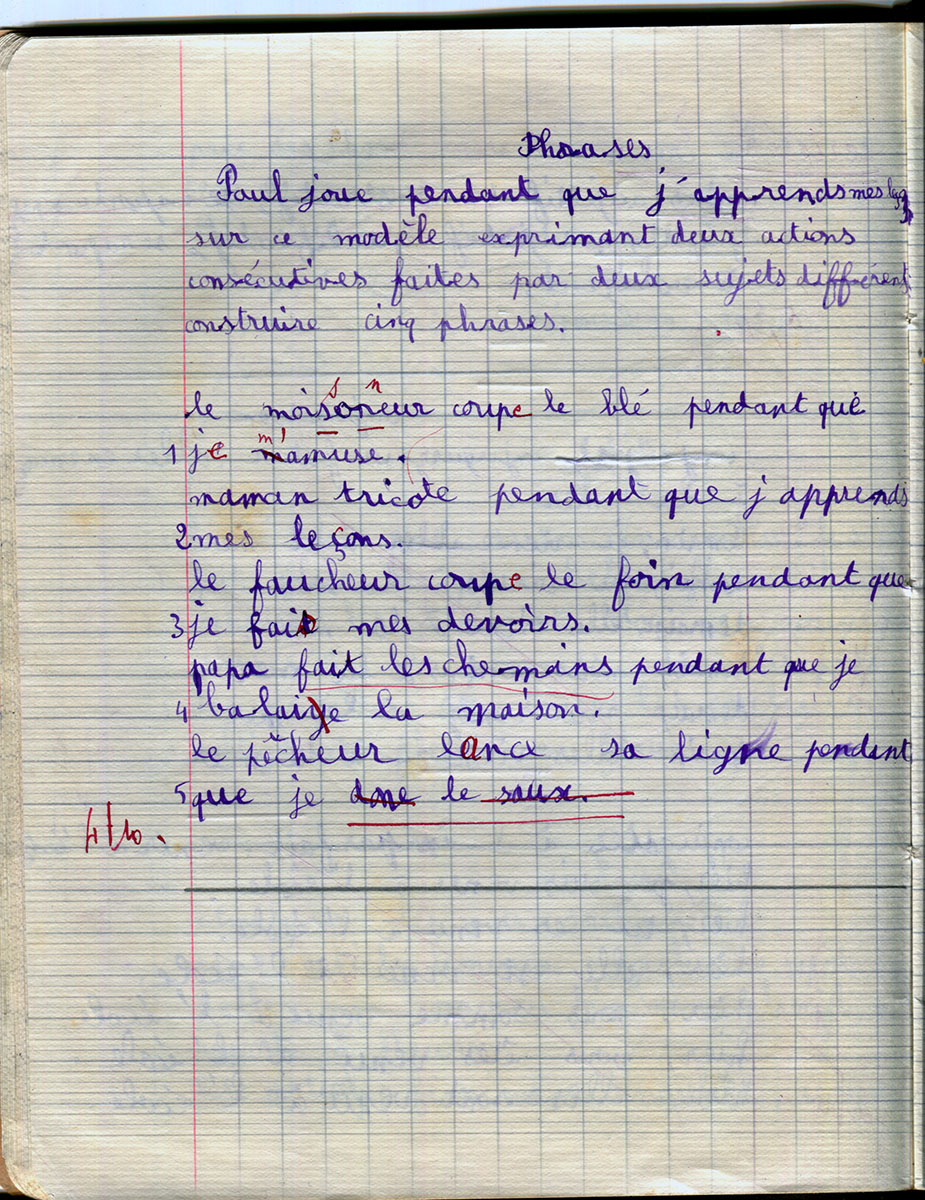 Phrases
Paul joue pendant que j'apprends mes
sur ce modèle exprimant deux actions
consécutives faites par deux sujets différent
construire cinq phrases.
s n
le moisoneur coupe le blé pendant que
m'
1 je mamuse.
maman tricote pendant que j'apprends
2 mes leçons.
le faucheur coupe le foin pendant que
3 je fais mes devoirs.
papa fait les chemins pendant que je
4 balaiye la maison.
le pêcheur lance sa ligne pendant
5 que je le
4/10.